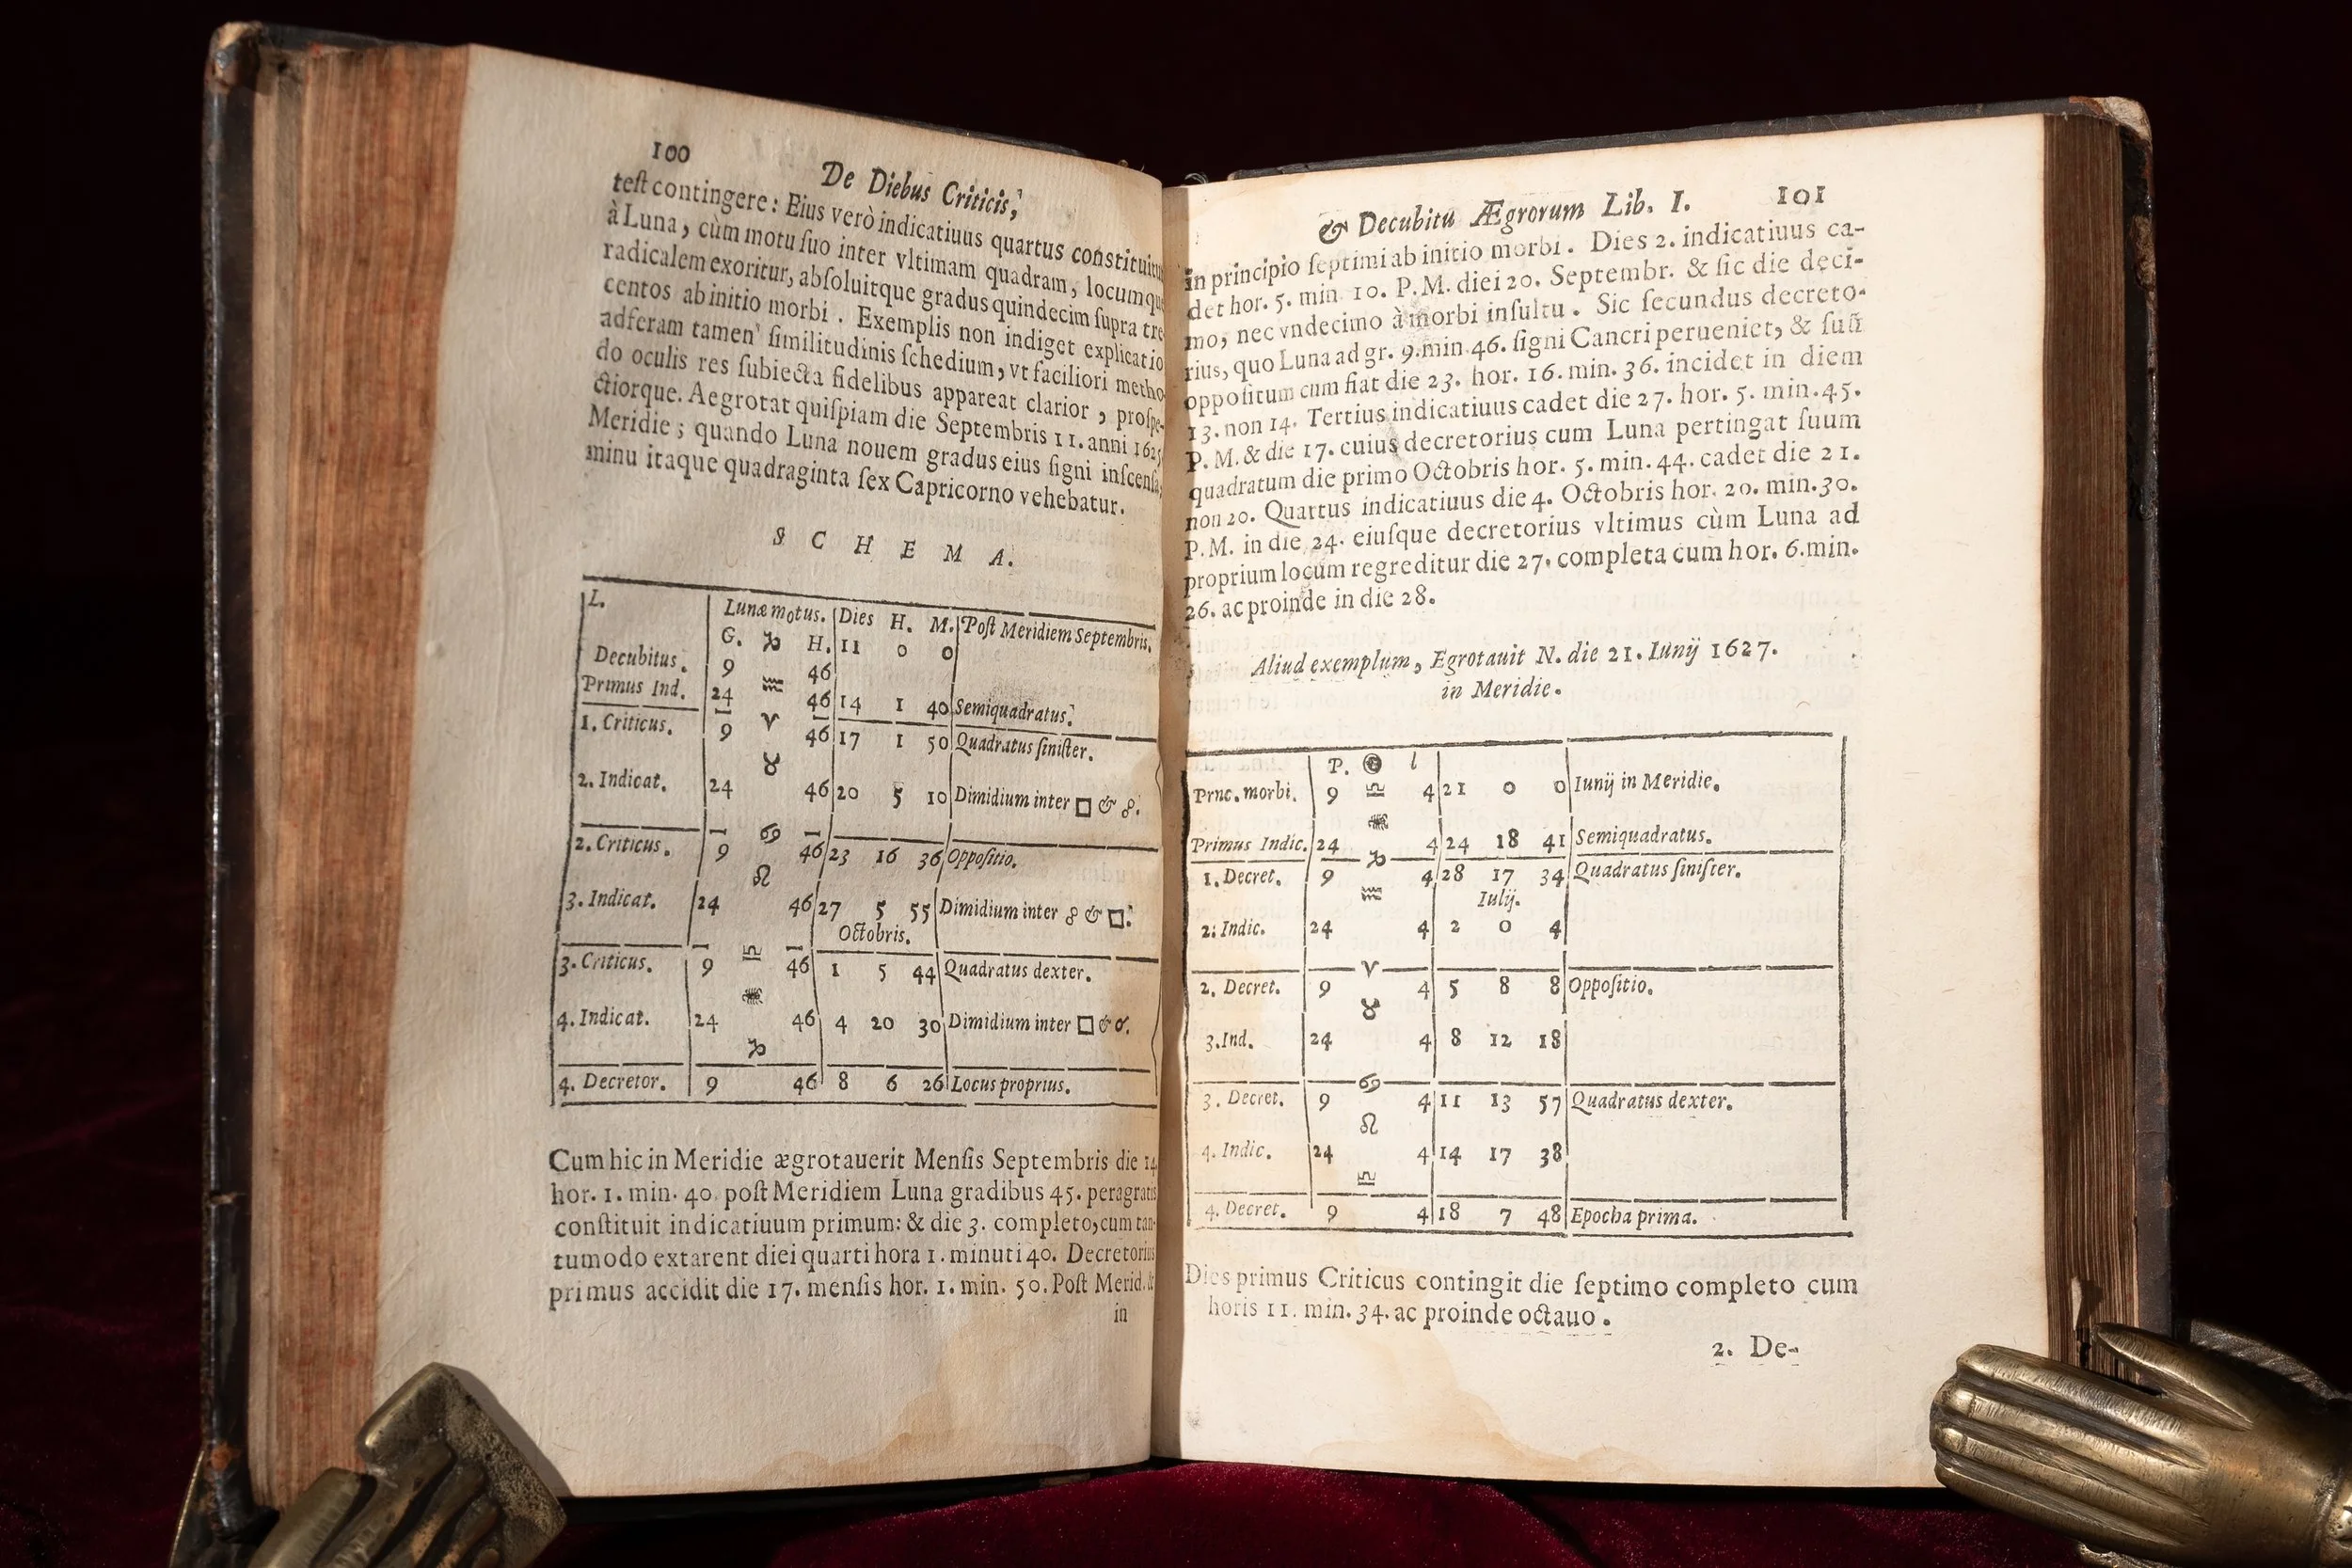 100
De Diebus Criticis,
teſt contingere: Eius verò indicatiuus quartus constituitur
à Luna, cùm motu ſuo inter vltimam quadram, locumque
radicalem exoritur, abſoluitque gradus quindecim ſupra tre-
centos ab initio morbi. Exemplis non indiget explicatio
adferam tamen ſimilitudinis ſchedium, vt faciliori metho-
do oculis res ſubiecta fidelibus appareat clarior, proſpe-
ctiorque. Aegrotat quiſpiam die Septembris 11. anni 1625
Meridie; quando Luna nouem gradus eius ſigni inſcenſa,
minu itaque quadraginta ſex Capricorno vehebatur.
S C H E M A.
L. Lunæ motus. Dies H. M. Poſt Meridiem Septembris.
G. ♑ H. 11 0 0
Decubitus. 9 46
♒
Primus Ind. 24 46 14 1 40 Semiquadratus.
1. Criticus. 9 ♈ 46 17 1 50 Quadratus ſiniſter.
♉
2. Indicat. 24 46 20 5 10 Dimidium inter □ & ☍.
♋
2. Criticus. 9 46 23 16 36 Oppoſitio.
♌
3. Indicat. 24 46 27 5 55 Dimidium inter ☍ & □.
Octobris.
3. Criticus. 9 ♎ 46 1 5 44 Quadratus dexter.
♏
4. Indicat. 24 46 4 20 30 Dimidium inter □ & ☌.
♑
4. Decretor. 9 46 8 6 26 Locus proprius.
Cum hic in Meridie ægrotauerit Menſis Septembris die 14
hor. 1. min. 40. poſt Meridiem Luna gradibus 45. peragratis
conſtituit indicatiuum primum: & die 3. completo, cum tan-
tumodo extarent diei quarti hora 1. minuti 40. Decretorius
primus accidit die 17. menſis hor. 1. min. 50. Poſt Merid. &
in
& Decubitu Ægrorum Lib. I. 101
in principio ſeptimi ab initio morbi. Dies 2. indicatiuus ca-
det hor. 5. min. 10. P. M. diei 20. Septembr. & ſic die deci-
mo, nec vndecimo à morbi inſultu. Sic ſecundus decreto-
rius, quo Luna ad gr. 9. min. 46. ſigni Cancri perueniet, & ſuū
oppoſitum cum fiat die 23. hor. 16. min. 36. incidet in diem
13. non 14. Tertius indicatiuus cadet die 27. hor. 5. min. 45.
P. M. & die 17. cuius decretorius cum Luna pertingat ſuum
quadratum die primo Octobris hor. 5. min. 44. cadet die 21.
non 20. Quartus indicatiuus die 4. Octobris hor. 20. min. 30.
P. M. in die 24. eiuſque decretorius vltimus cùm Luna ad
proprium locum regreditur die 27. completa cum hor. 6. min.
26. ac proinde in die 28.
Aliud exemplum, Egrotauit N. die 21. Iunij 1627.
in Meridie.
P. l
Prnc. morbi. 9 ♎ 4 21 0 0 Iunij in Meridie.
♏
Primus Indic. 24 4 24 18 41 Semiquadratus.
♑
1. Decret. 9 4 28 17 34 Quadratus ſiniſter.
♒ Iulij.
2. Indic. 24 4 2 0 4
♈
2. Decret. 9 4 5 8 8 Oppoſitio.
♉
3. Ind. 24 4 8 12 18
♋
3. Decret. 9 4 11 13 57 Quadratus dexter.
♌
4. Indic. 24 4 14 17 38
♎
4. Decret. 9 4 18 7 48 Epocha prima.
Dies primus Criticus contingit die ſeptimo completo cum
horis 11. min. 34. ac proinde octauo.
2. De-